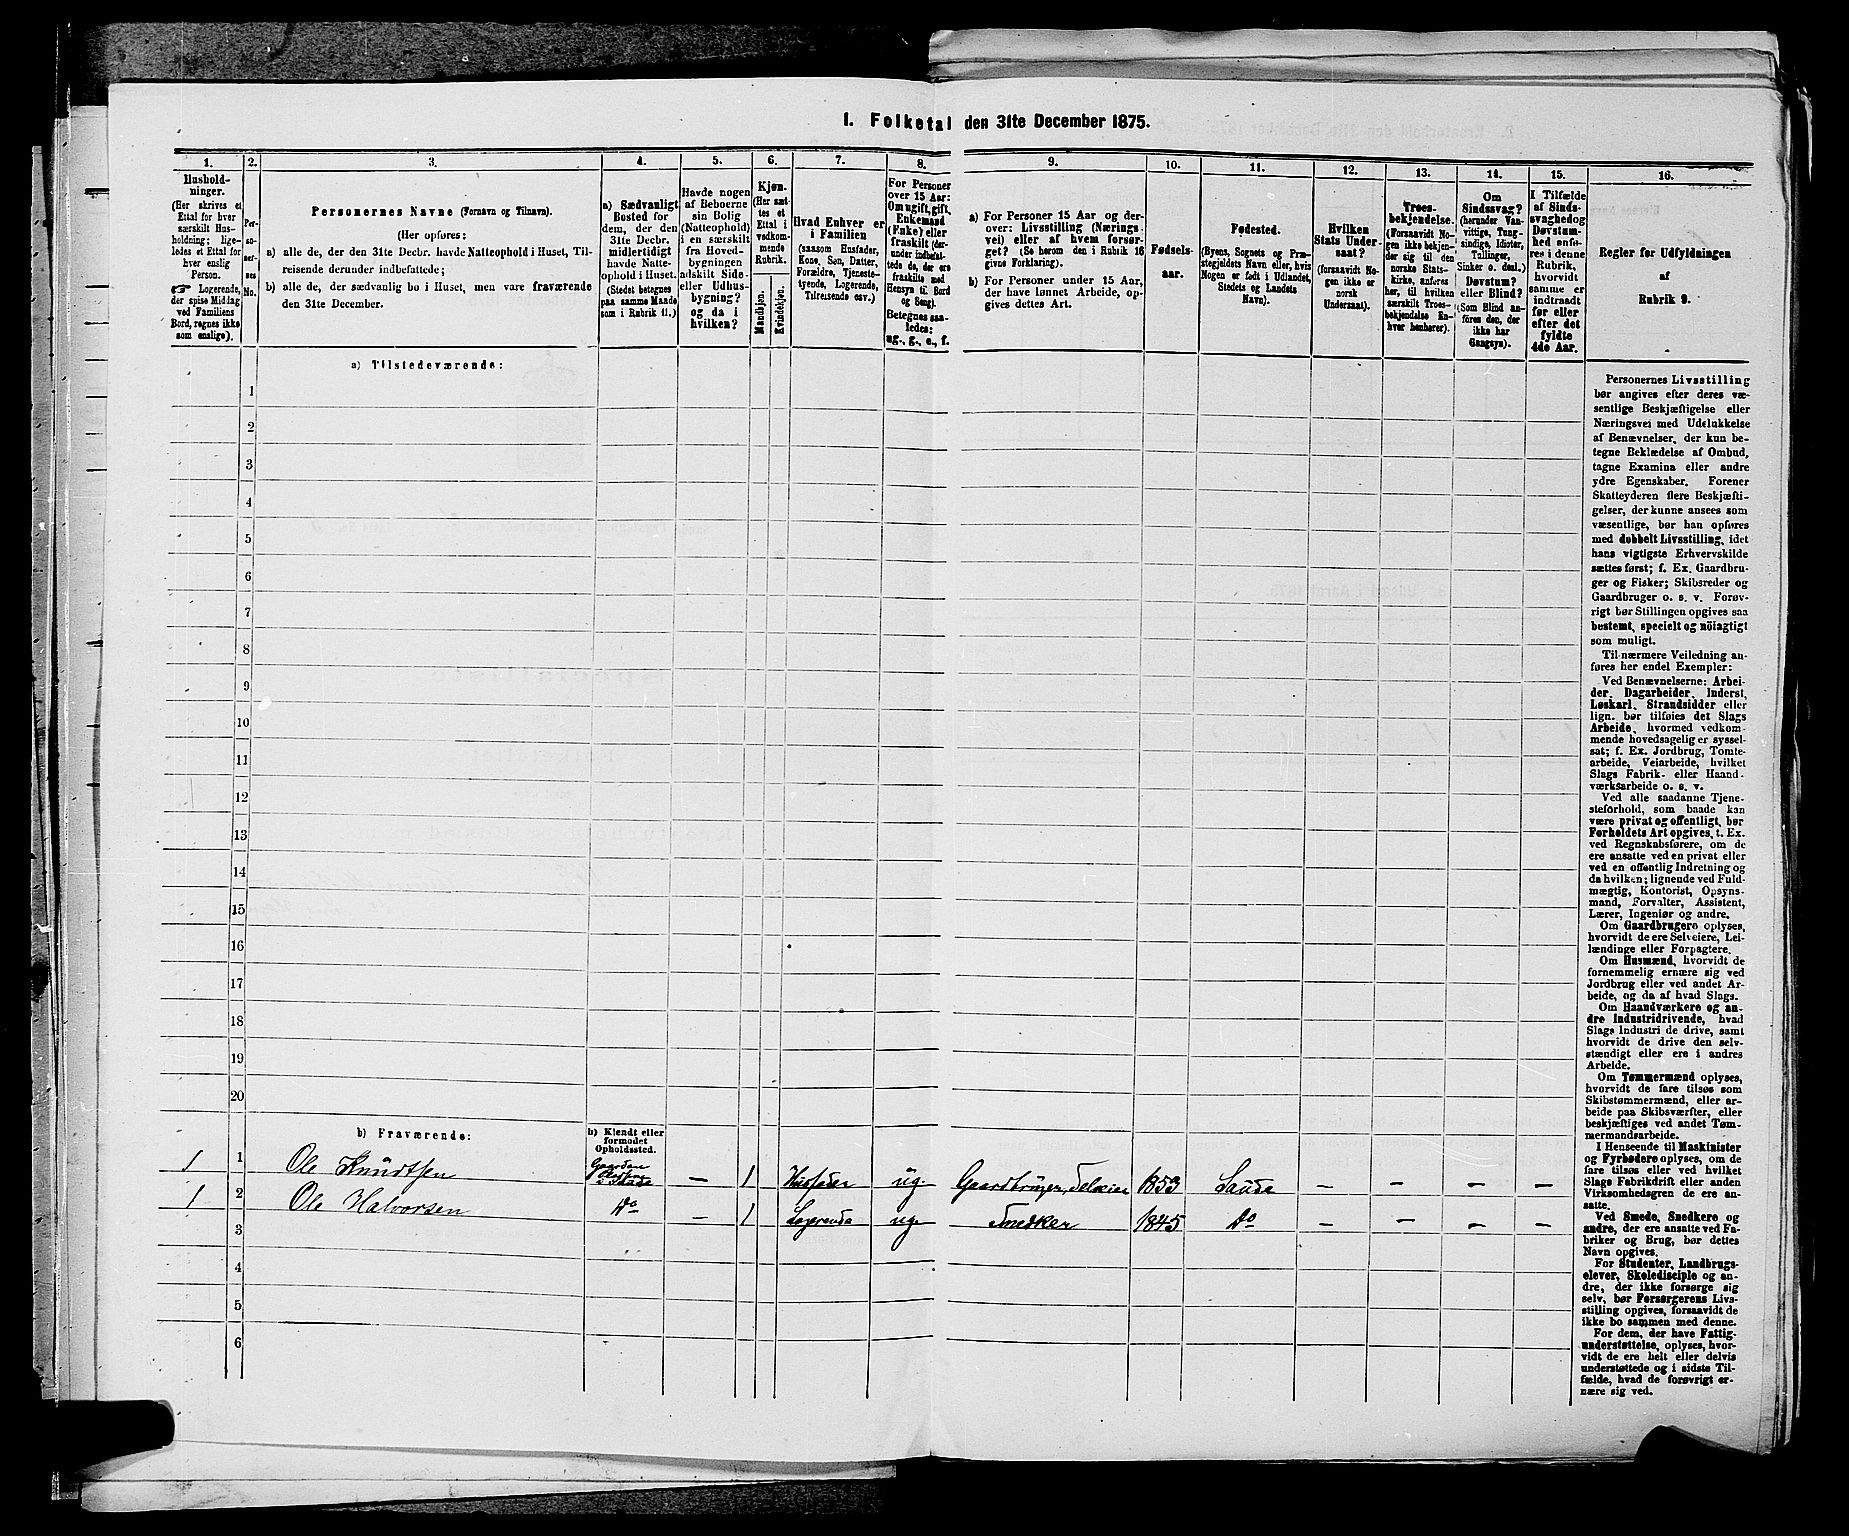 I. Folketal den 31te December 1875.
1. 2. 3. 4. 5. 6. 7. 8. 9. 10. 11. 12. 13. 14. 15. 16.
Hushold-
ninger.
(Her skrives et
Ettal for hver
særskilt Hus-
holdning; lige-
ledes et Ettal for
hver enslig
Person.
☞ Logerende,
der spise Middag
ved Familiens
Bord, regnes ikke
som enslige).
Per-
so-
ner-
nes
No.
Personernes Navne (Fornavn og Tilnavn).
(Her opføres:
a) alle de, der den 31te Decbr. havde Natteophold i Huset, Til-
reisende derunder indbefattede;
b) alle de, der sædvanlig bo i Huset, men vare fraværende
den 31te December.
a) Sædvanligt
Bosted for
dem, der den
31te Decbr.
midlertidigt
havde Natte-
ophold i Huset.
(Stedet betegnes
paa samme Maade
som i Rubrik 11.)
Havde nogen
af Beboerne
sin Bolig
(Natteophold)
i en særskilt
fra Hoved-
bygningen
adskilt Side-
eller Udhus-
bygning?
og da i
hvilken?
Kjøn.
(Her sæt-
tes et
Ettal i
vedkom-
mende
Rubrik.
Mandkjøn.
Kvindekjøn.
Hvad Enhver er
i Familien
(saasom Husfader,
Kone, Søn, Datter,
Forældre, Tjeneste-
tyende, Logerende,
Tilreisende osv.)
For Personer
over 15 Aar:
Om ugift, gift,
Enkemand
(Enke) eller
fraskilt (der-
under indbefat-
tede de, der ere
fraskilte med
Hensyn til Bord
og Seng).
Betegnes saa-
ledes:
ug., g., e., f.
a) For Personer 15 Aar og der-
over: Livsstilling (Nærings-
vei) eller af hvem forsør-
get? (Se herom den i Rubrik 16
givne Forklaring).
b) For Personer under 15 Aar,
der have lønnet Arbeide, op-
gives dettes Art.
Fødsels-
aar.
Fødested.
(Byens, Sognets og Præ-
stegjeldets Navn eller, hvis
Nogen er født i Udlandet,
Stedets og Landets
Navn).
Hvilken
Stats Under-
saat?
(forsaavidt No-
gen ikke er
norsk
Undersaat).
Troes-
bekjendelse.
(Forsaavidt No-
gen ikke bekjen-
der sig til den
norske Stats-
kirke, anføres
her, til hvilken
særskilt Troes-
bekjendelse En-
hver henhører).
Om
Sindssvag?
(herunder Van-
vittige, Tung-
sindige, Idioter,
Tullinger,
Sinker o. desl.)
Døvstum?
eller Blind?
(Som Blind an-
føres den, der
ikke har
Gangsyn).
I Tilfælde
af Sinds-
svaghed og
Døvstum-
hed anfø-
res i denne
Rubrik,
hvorvidt
samme er
indtraadt
før eller
efter det
fyldte
4de Aar.
Regler for Udfyldningen
af
Rubrik 9.
a) Tilstedeværende:
1
2
3
4
5
6
7
8
9
10
11
12
13
14
15
16
17
18
19
20
b) Fraværende:
b) Kjendt eller
formodet
Opholdssted.
1 1 Ole Knudtsen — 1 Husfader ug. Gaardbruger, Selveier 1853 Sauda — — — —
1 2 Ole Halvorsen Do — 1 Logerende ug. Snedker 1845 Do — — — —
3
4
5
6
Personernes Livsstilling
bør angives efter deres væ-
sentlige Beskjæftigelse eller
Næringsvei med Udelukkelse
af Benævnelser, der kun be-
tegne Beklædelse af Ombud,
tagne Examina eller andre
ydre Egenskaber. Forener
Skatteyderen flere Beskjæfti-
gelser, der kunne ansees som
væsentlige, bør han opføres
med dobbelt Livsstilling, idet
hans vigtigste Erhvervskilde
sættes først; f. Ex. Gaardbru-
ger og Fisker; Skibsreder og
Gaardbruger o. s. v. Forøv-
rigt bør Stillingen opgives saa
bestemt, specielt og nöiagtigt
som muligt.
Til nærmere Veiledning an-
føres her endel Exempler:
Ved Benævnelserne: Arbei-
der, Dagarbeider, Inderst,
Løskarl, Strandsidder eller
lign. bør tilføies det Slags
Arbeide, hvormed vedkom-
mende hovedsagelig er syssel-
sat; f. Ex. Jordbrug, Tomte-
arbeide, Veiarbeide, hvilket
Slags Fabrik- eller Haand-
værksarbeide o. s. v.
Ved alle saadanne Tjene-
steforhold, som baade kan
være privat og offentligt, bør
Forholdets Art opgives, t. Ex.
ved Regnskabsførere, om de
ere ansatte ved en privat eller
ved en offentlig Indretning og
da hvilken; lignende ved Fuld-
mægtig, Kontorist, Opsyns-
mand, Forvalter, Assistent,
Lærer, Ingeniør og andre.
Om Gaardbrugere oplyses,
hvorvidt de ere Selveiere, Lei-
lændinge eller Forpagtere.
Om Husmænd, hvorvidt de
fornemmelig ernære sig ved
Jordbrug eller ved andet Ar-
beide, og da af hvad Slags.
Om Haandværkere og an-
dre Industridrivende, hvad
Slags Industri de drive, samt
hvorvidt de drive den selv-
stændigt eller ere i andres
Arbeide.
Om Tømmermænd oplyses,
hvorvidt de fare tilsøs som
Skibstømmermænd, eller ar-
beide paa Skibsværfter, eller
beskjæftiges ved andet Tøm-
mermandsarbeide.
I Henseende til Maskinister
og Fyrbødere oplyses, om de
fare tilsøs eller ved hvilket
Slags Fabrikdrift eller anden
Virksomhedsgren de ere an-
satte.
Ved Smede, Snedkere og
andre, der ere ansatte ved Fa-
briker og Brug, bør dettes
Navn opgives.
For Studenter, Landbrugs-
elever, Skoledisciple og an-
dre, der ikke forsørge sig
selv, bør Forsørgerens Livs-
stilling opgives, forsaavidt de
ikke bo sammen med denne.
For dem, der have Fattig-
understøttelse, oplyses, hvor-
vidt de ere helt eller delvis
understøttede og i sidste Til-
fælde, hvad de forøvrigt er-
nære sig ved.